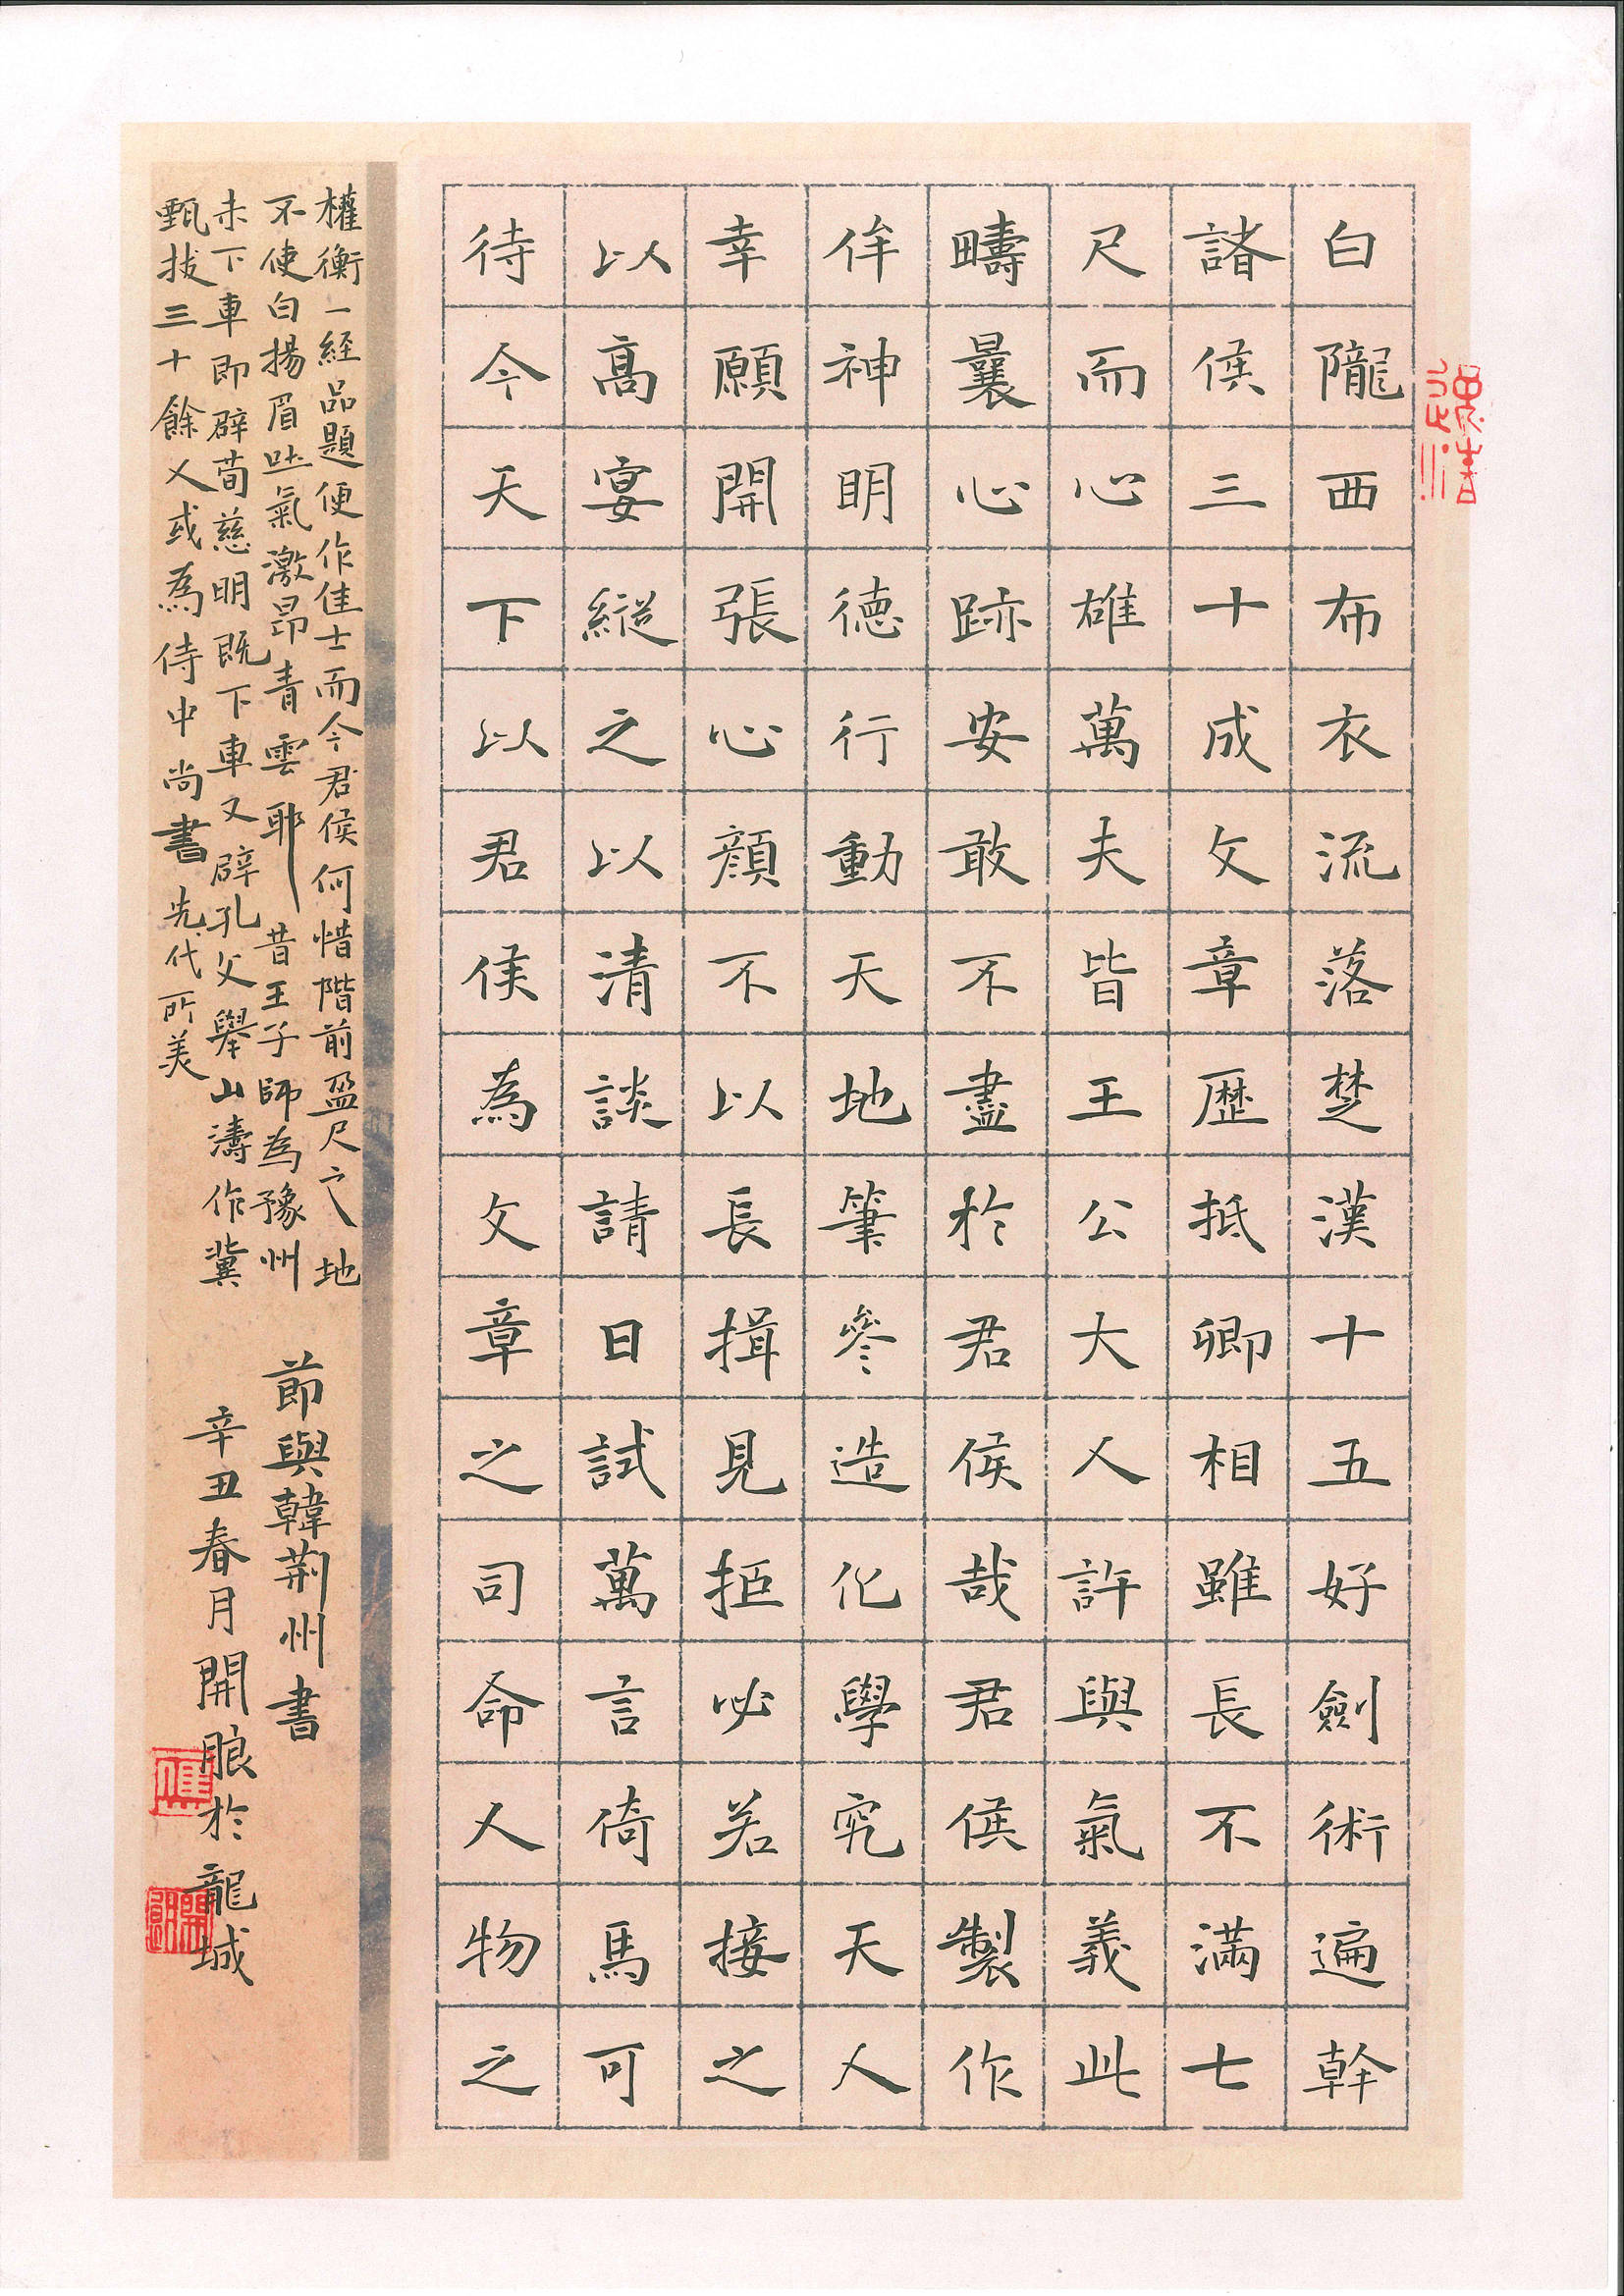 白隴西布衣流落楚漢十五好劍術遍幹
諸侯三十成文章歷抵卿相雖長不滿七
尺而心雄萬夫皆王公大人許與氣義此
疇曩心跡安敢不盡於君侯哉君侯製作
侔神明德行動天地筆參造化學究天人
幸願開張心顔不以長揖見拒必若接之
以高宴縱之以清談請日試萬言倚馬可
待今天下以君侯為文章之司命人物之
權衡一經品題便作佳士而今君侯何惜階前盈尺之地
不使白揚眉吐氣激昂青雲耶昔王子師為豫州
未下車即辟荀慈明既下車又辟孔文舉山濤作冀
甄拔三十餘人或為侍中尚書先代所美
節與韓荊州書
辛丑春月開朖於龍城